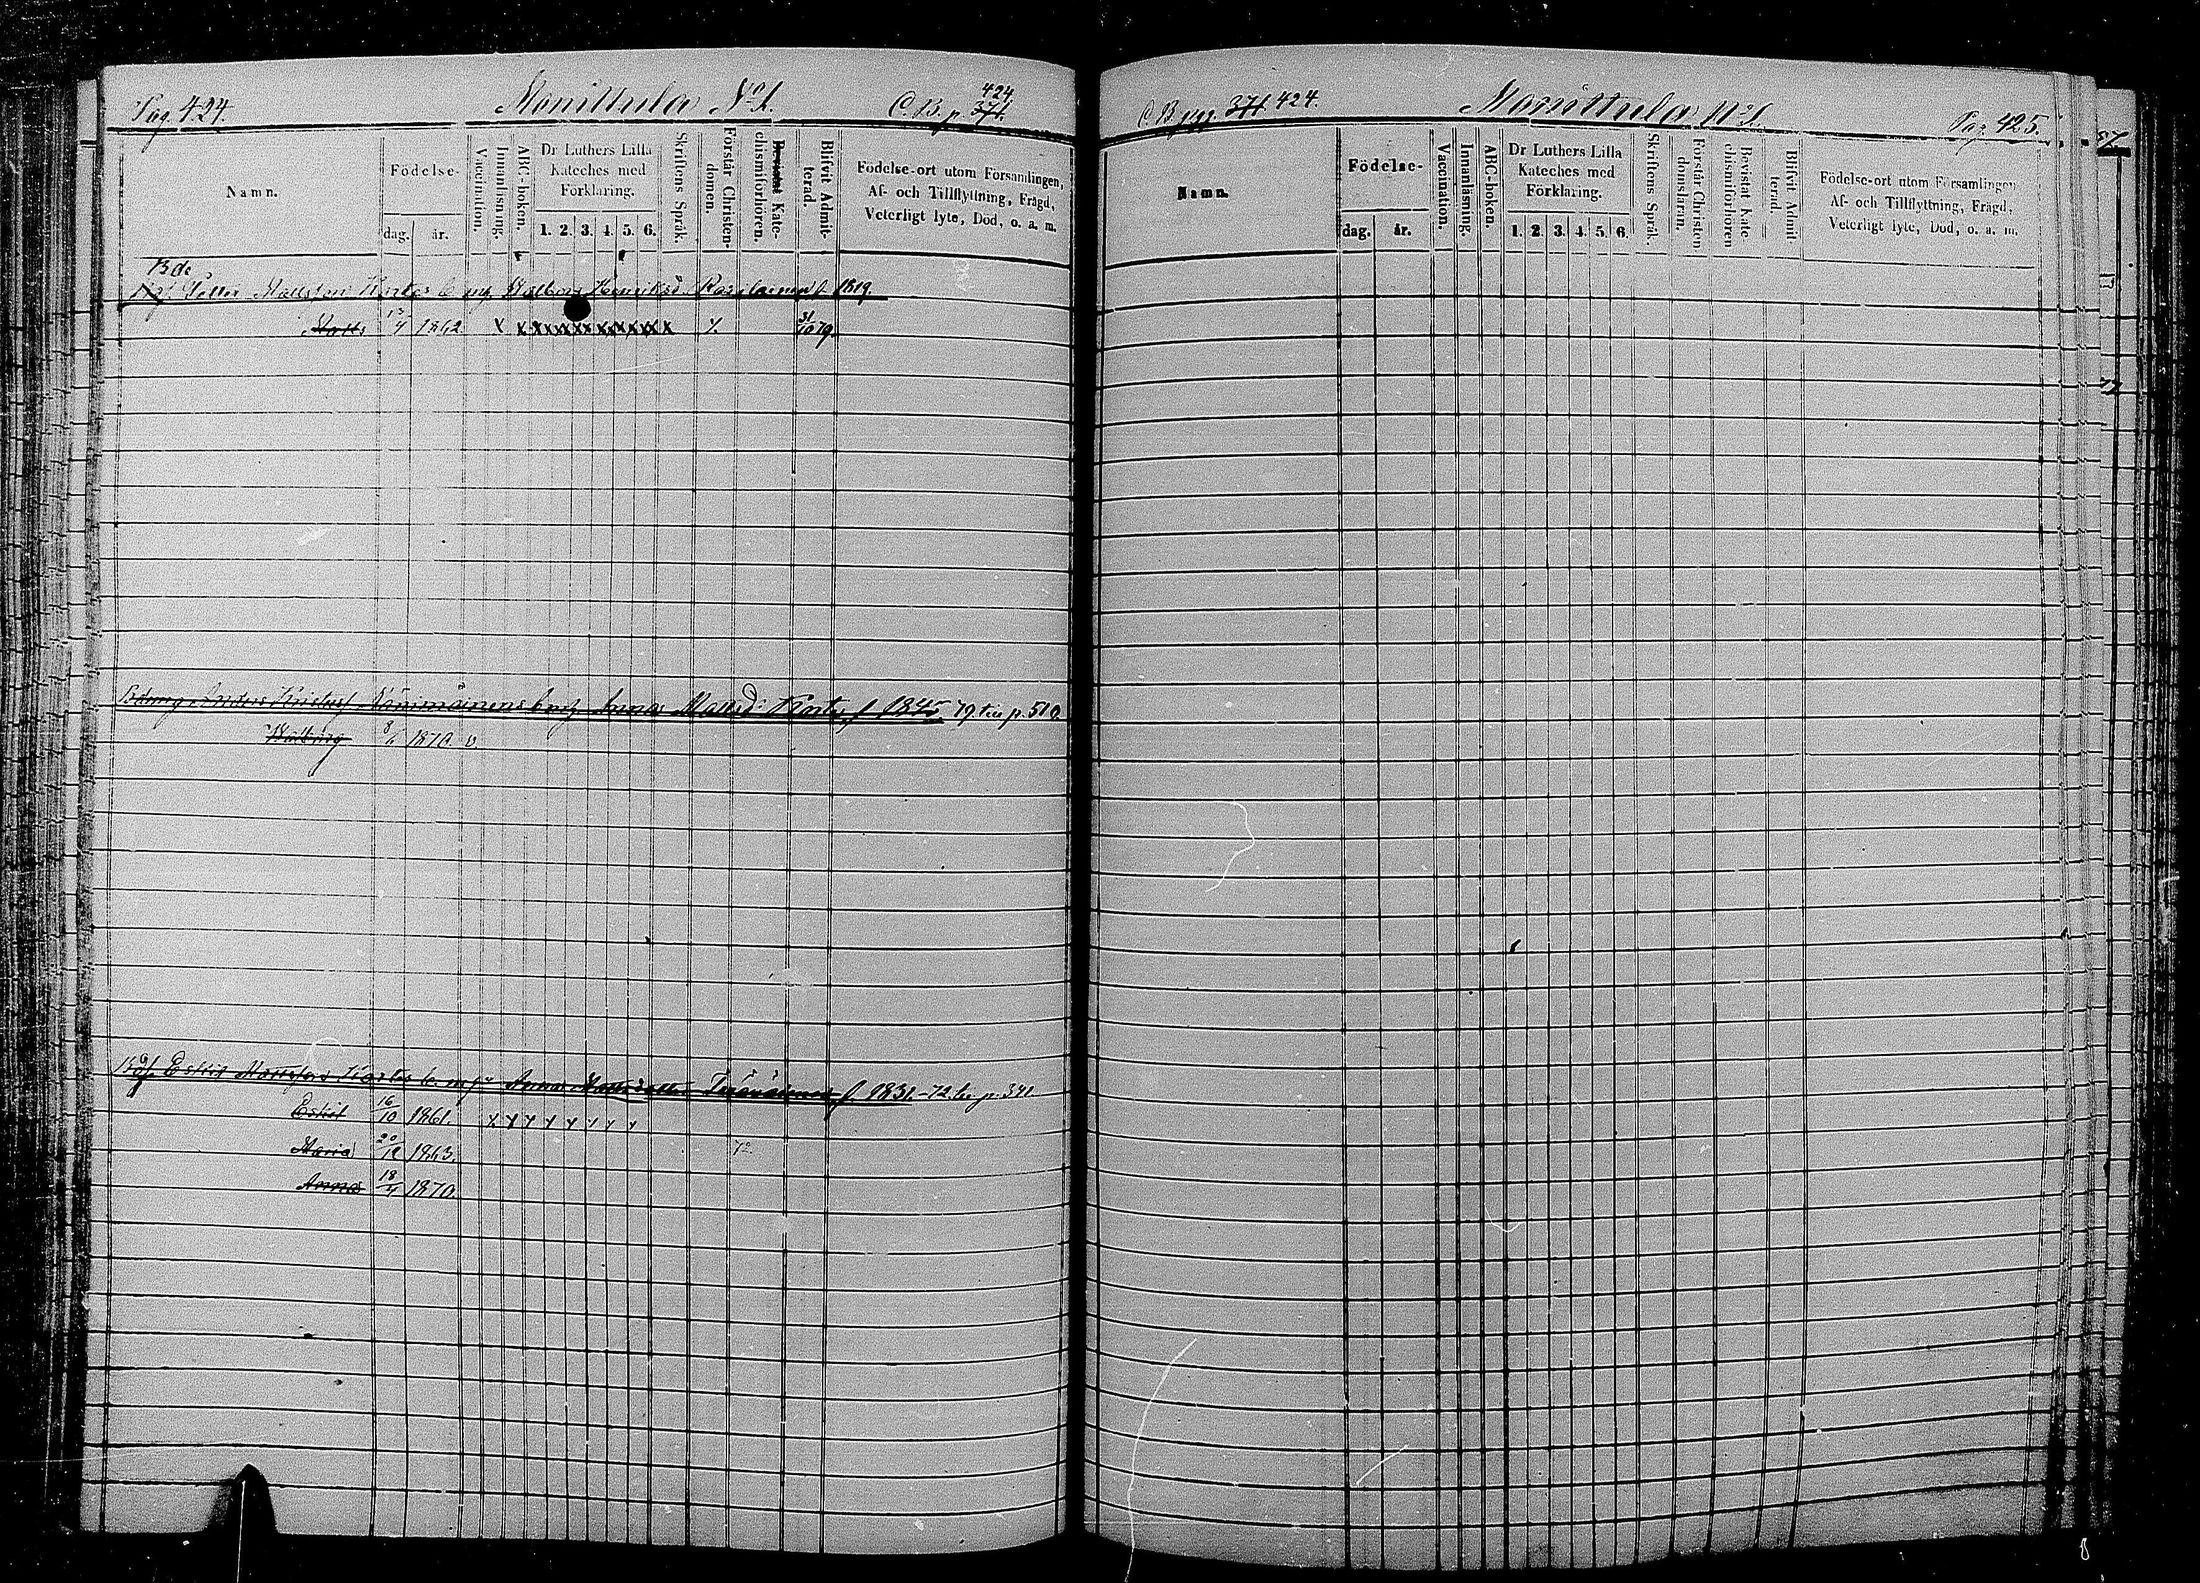 Pag. 424.
Monittula No 1.
C. B. p. 371. 424
Namn.
Födelse-
dag.
år.
Vaccination.
Innanläsning.
ABC-boken.
Dr Luthers Lilla
Kateches med
Förklaring.
1. 2. 3. 4. 5. 6.
Skriftens Språk.
Förstår Christen-
domen.
Bevistat Kate-
chismiförhören.
Blifvit Admit-
terad.
Födelse-ort utom Församlingen,
Af- och Tillflyttning, Frägd,
Veterligt lyte, Död, o. a. m.
Bde
Petter Mattsson Kortes Enkg Walborg Henriksd. f. 1819
Matts 13/4 1862. x x x x x x x x x x x x x x 31/10 79.
Anders Kristersf Enkg Anna Mattsd: Korte f 1845 79 till p. 510.
Walborg 8/6 1870. v.
Eskil Mattsson Kortes Anna Mattsdotter f 1831 - 72 p. 341
Eskil 16/10 1861. x x x x x x x x
Maria 20/12 1863. 72.
Anna 18/4 1870.
C. B. pag. 371 424.
Monittula No 1.
Pag. 425.
Namn.
Födelse-
dag.
år.
Vaccination.
Innanläsning.
ABC-boken.
Dr Luthers Lilla
Kateches med
Förklaring.
1. 2. 3. 4. 5. 6.
Skriftens Språk.
Förstår Christen-
domsläran.
Bevistat Kate
chismiförhören
Blifvit Admit
terad.
Födelse-ort utom Församlingen
Af- och Tillflyttning, Frägd,
Veterligt lyte, Död, o. a. m.